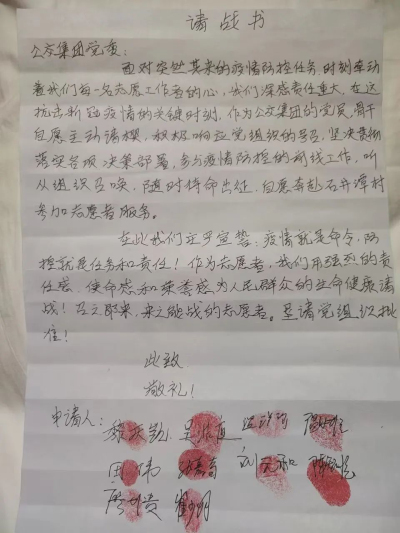 请战书
公交集团党委:
面对突然其来的疫情防控任务,时刻牵动
着我们每一名志愿工作者的心,我们深感责任重大,在这
抗击新冠疫情的关键时刻,作为公交集团的党员、骨干
自愿主动请缨,积极响应党组织的号召,坚决贯彻
落实各项决策部署,参与疫情防控的前线工作,听
从组织召唤,随时待命出征,自愿奔赴石井潭村
参加志愿者服务。
在此我们庄严宣誓:疫情就是命令,防
控就是任务和责任!作为志愿者,我们用强烈的责
任感、使命感和荣誉感为人民群众的生命健康请
战!召之即来,来之能战的志愿者。恳请党组织批
准!
此致
敬礼!
申请人:
田伟